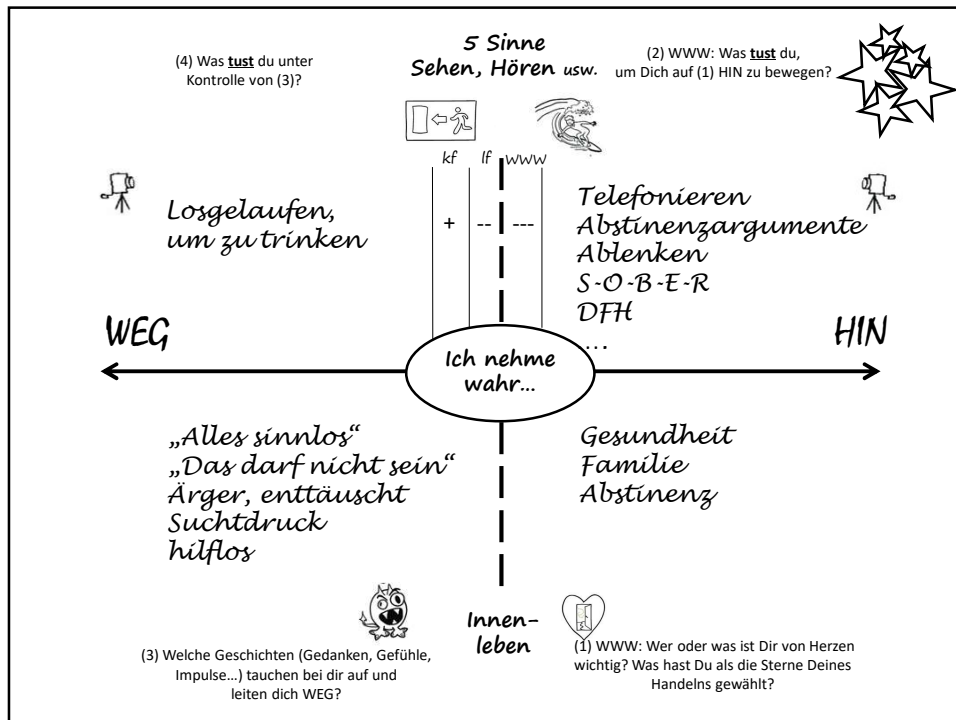 (4) Was tust du unter
Kontrolle von (3)?
5 Sinne
Sehen, Hören usw.
(2) WWW: Was tust du,
um Dich auf (1) HIN zu bewegen?
kf
lf
WWW
Losgelaufen,
um zu trinken
+
--
---
Telefonieren
Abstinenzargumente
Ablenken
S-O-B-E-R
DFH
...
WEG
HIN
Ich nehme
wahr...
„Alles sinnlos“
„Das darf nicht sein“
Ärger, enttäuscht
Suchtdruck
hilflos
Gesundheit
Familie
Abstinenz
Innen-
leben
(3) Welche Geschichten (Gedanken, Gefühle,
Impulse...) tauchen bei dir auf und
leiten dich WEG?
(1) WWW: Wer oder was ist Dir von Herzen
wichtig? Was hast Du als die Sterne Deines
Handelns gewählt?